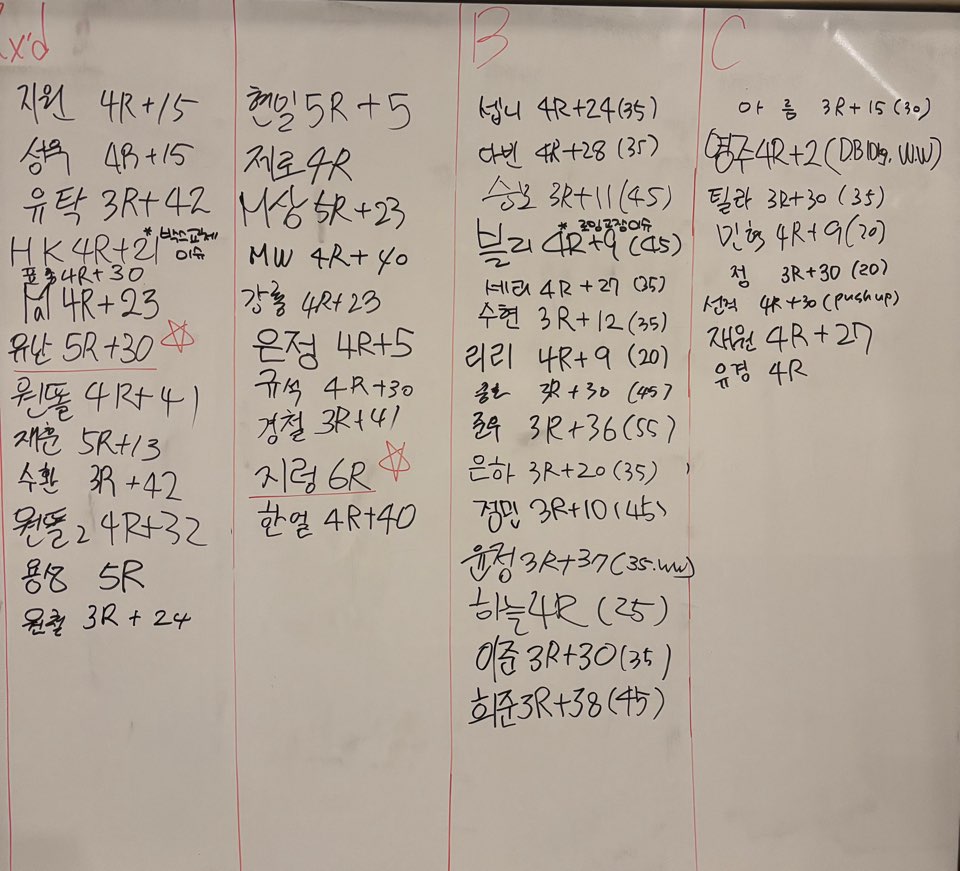 x'd
지원 4R+15
성욱 4R+15
유탁 3R+42
HK 4R+21 *박스교체 이슈
표송 4R+30
Pal 4R+23
유난 5R+30
원똘 4R+41
재훈 5R+13
수환 3R+42
원똘2 4R+32
용성 5R
원철 3R+24
현밀 5R+5
제로 4R
M상 5R+23
MW 4R+40
강룡 4R+23
은정 4R+5
규석 4R+30
경철 3R+41
지렁 6R
한얼 4R+40
B
셉니 4R+24(35)
다빈 4R+28 (35)
승모 3R+11(45)
블리 4R+9 (45) *로잉고장이슈
세티 4R+27 (35)
수현 3R+12(35)
리리 4R+9 (20)
3R+30 (45)
준우 3R+36(55)
은하 3R+20(35)
정민 3R+10(45)
윤정 3R+37(35.ww)
하늘 4R (25)
이준 3R+30(35)
희준 3R+38(45)
C
아름 3R+15(30)
영주 4R+2(D.B 10kg, W.W)
틸라 3R+30 (35)
민혁 4R+9(20)
점 3R+30 (20)
선적 4R+30(push up)
재원 4R+27
유경 4R